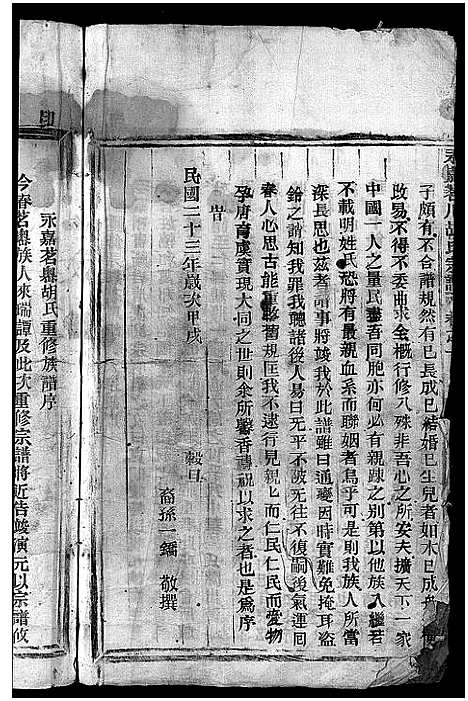 子頗有不合譜規然有已長成已結婚已生兒者如木已成
改易不得不委曲求全概行修入殊非吾心之所安夫擴天下一家
中國一人之量民吾同胞亦何必有親疎之別第以他族入繼若
不載明姓氏恐將有最親血系而聯姻者烏乎可是則我族人所當
深長思也茲者譜事將竣我於此譜雖曰通變因時實難免掩耳盜
鈴之誚知我罪我聽諸後人易曰无平不陂无往不復嗣後氣運回
春人心思古能重整舊規匡我不逮行見親親仁民仁民而愛物
孕唐育虞實現大同之世則余所馨香禱祝以求之者也是爲序
旹
民國二十三年歲次甲戌 穀旦
裔孫一鏞 敬撰
永嘉茗嶴胡氏重修族譜序
今春茗嶴族人來瑞譚及此次重修宗譜將近告竣演元以宗譜攸